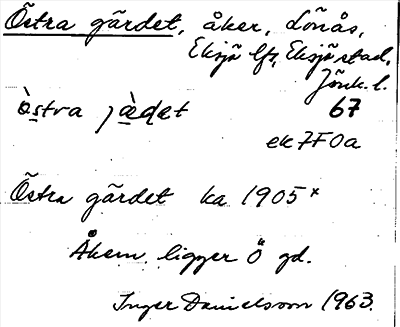 Östra gärdet, åker, Lönås,
Eksjö lfs, Eksjö stad,
Jönk. l.
òstra jæ̀ḍet 67
ek 7F0a
Östra gärdet ka 1905 x
Åkern ligger Ö gd.
Inger Danielsson 1963.